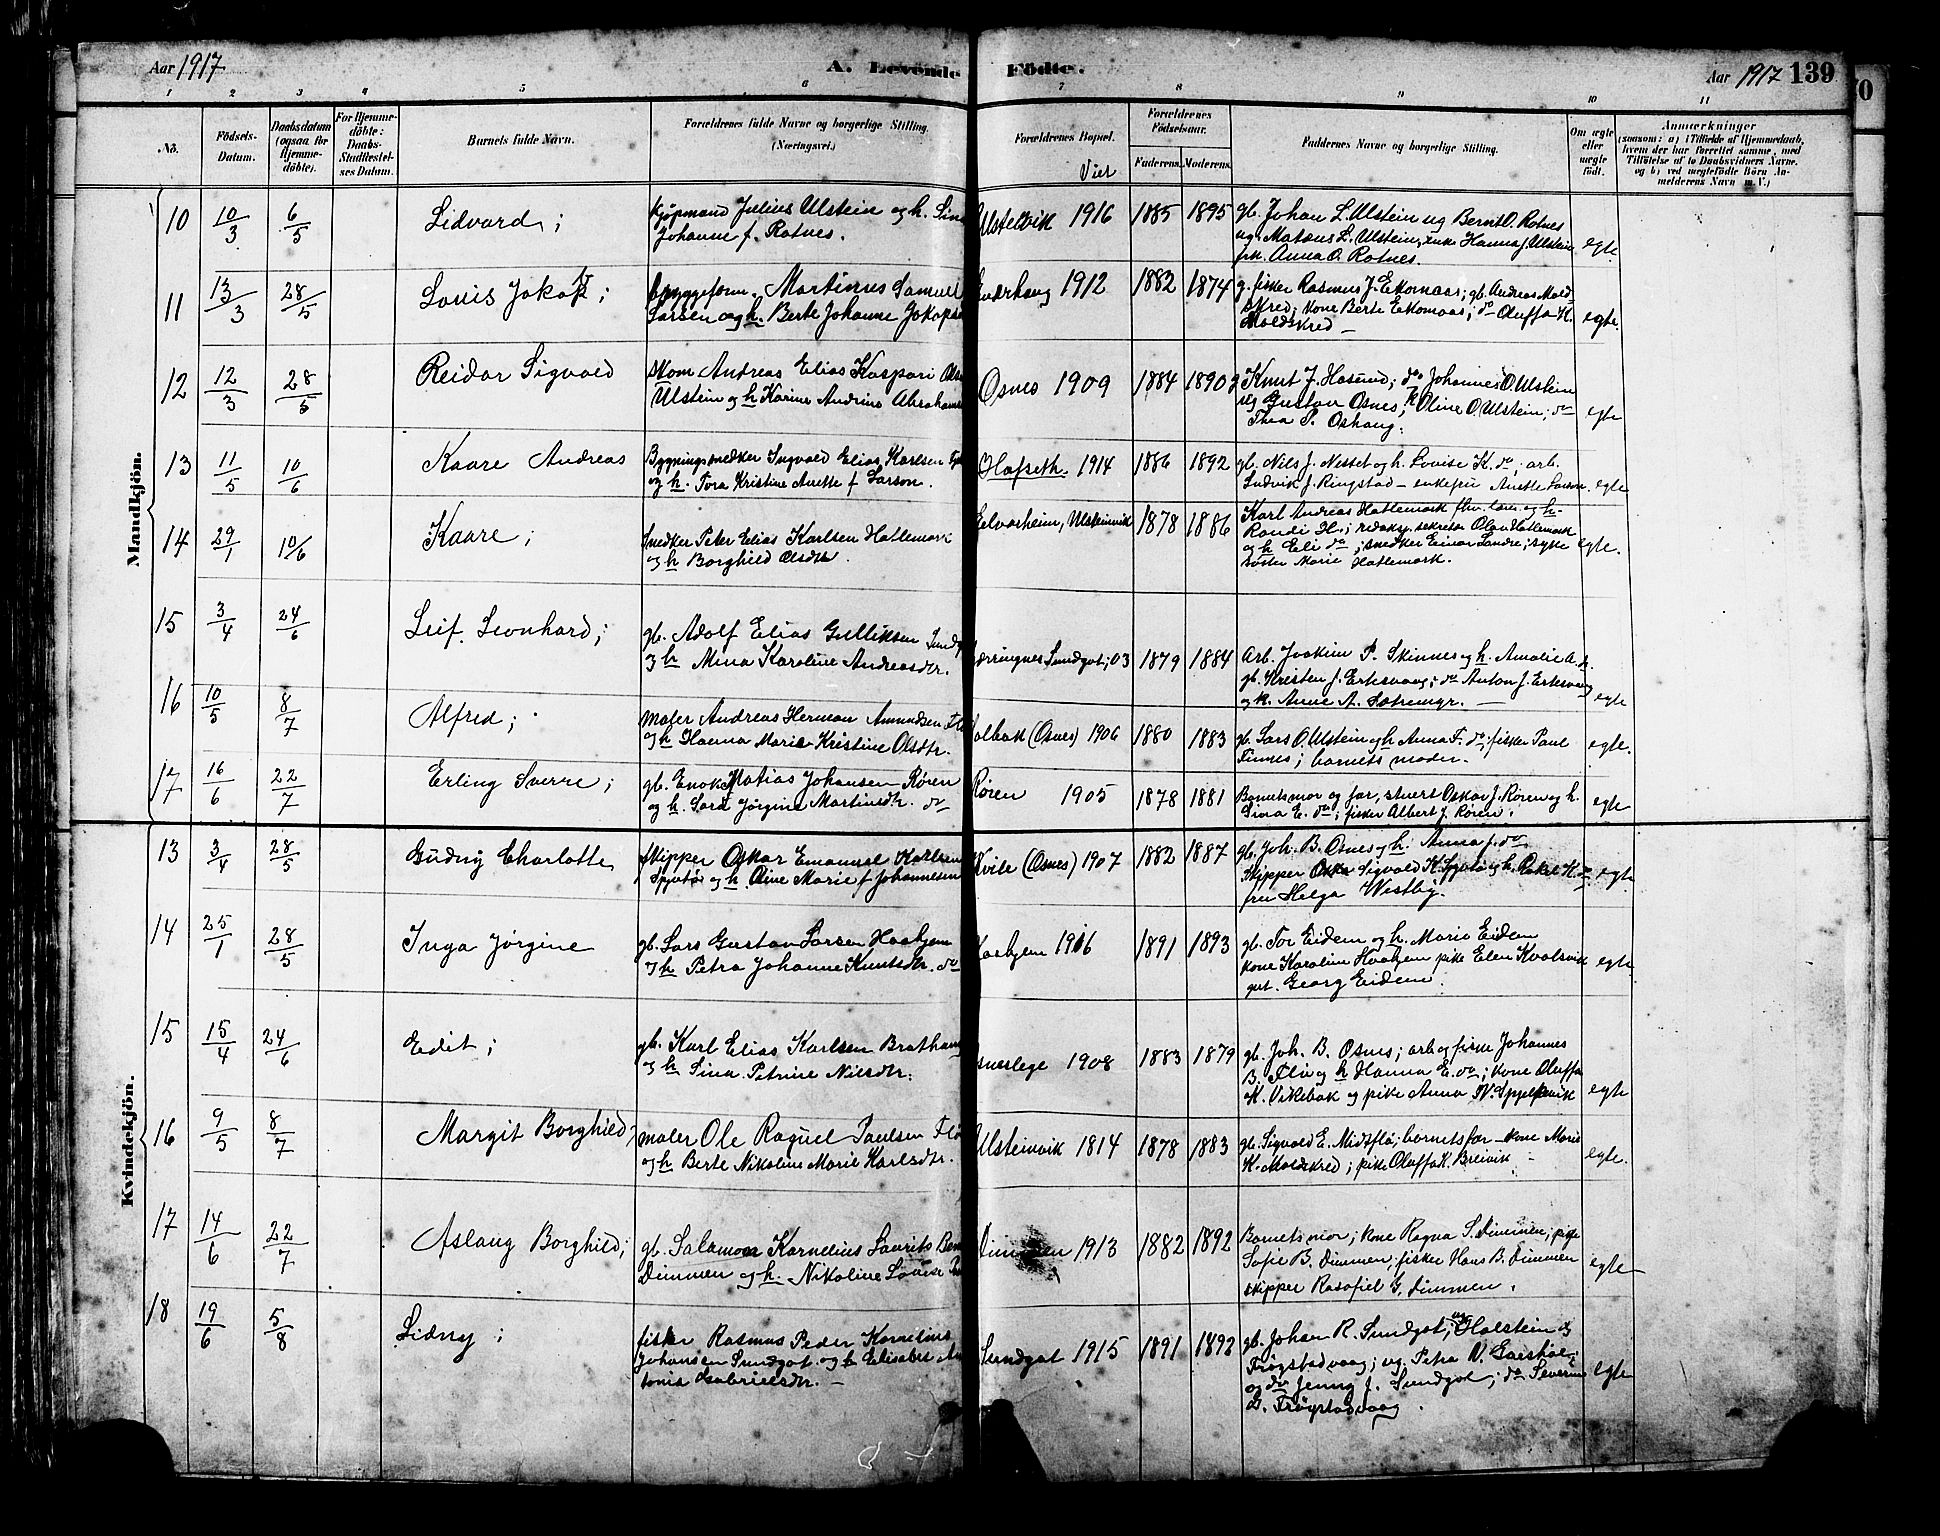 Aar 1917
A. Levende Födte.
Aar 1917 139
1 2 3 4 5 6 7 8 9 10 11
No.
Födsels-Datum.
Daabsdatum (ogsaa for Hjemmedöbte).
For Hjemmedöbte: Daabs-Stadfæstelses Datum.
Barnets fulde Navn.
Forældrenes fulde Navne og borgerlige Stilling. (Næringsvei.)
Forældrenes Bopæl.
Viet
Forældrenes Födselsaar.
Faderens. Moderens.
Faddernes Navne og borgerlige Stilling.
Om ægte eller uægte födt.
Anmærkninger
(saasom: a) i Tilfælde af Hjemmedaab,
hvem der har forrettet samme, med
Tilföielse af to Daabsvidners Navne.
og b) ved uægtefödte Börn An-
melderens Navn m. V.)
Mandkjön.
10 10/3 6/5 Sidvard; Kjøpmand Julius Ulstein og h. Sina
Johanne f. Rotnes. 1916 1885 1895 gb. Johan L. Ulstein ug Bernt O. Rotnes
ug. Mataus L. Ulstein, enke Hanna J. Ulstein
frk. Anna O. Rotnes. egte.
11 13/3 28/5 Louis Jakob; Martinus Samuel
Larsen og h. Berte Johanne Jakops 1912 1882 1874 g. fisker Rasmus J. Eikomaas; gb. Andreas Mold-
skred; kone Berte Eikomaas; do Oluffa K.
Moldskred — egte
12 12/3 28/5 Reidar Sigvald Andreas Elias Kaspari
Ulstein og h Karine Andrine Abrahams Osnes 1909 1884 1890 Knut J. Hasund; do Johannes O. Ulstein
ug Gustav Osnes, Oline O. Ulstein; do
Thea P. Oshaug. egte
13 11/5 10/6 Kaare Andreas Bygningsnedker Ingvald Elias Karlsen
og h. Tora Kristine Anette f Larson. Olafseth. 1914 1886 1892 gb. Nils J. Nesset og h. Lovise K. do; arb.
Ludvik J. Ringstad — enkefru Anette Larson. egte
14 29/1 10/6 Kaare; Snedker Peter Elias Karlsen Hatlemark
og h Borghild Olsdtr. Ulsteinvik 1878 1886 Karl Andreas Hatlemark fhv. lærer og h.
Randi H.; redaksj. sekretær Olav Hatlemark
og h Eli do; snedker Einar Landre; syke
søster Marie Hatlemark. egte.
15 3/4 24/6 Leif Leonhard; gb. Adolf Elias Gulliksen
og h Mina Karoline Andreasdtr. Sundgot; 03 1879 1884 Arb. Joakim P. Skinnes og h. Amalie A.
gb. Kristen J. Erksvaag; do Anton J. Eriksvaag
og k. Anne A. Sætremyr. — egte
16 10/5 8/7 Alfred; Maler Andreas Herman Amundsen
og h Hanna Marie Kristine Olsdtr. (Osnes) 1906 1880 1883 gb. Lars O. Ulstein og h Anna F. do; fisker Paul
Finnes; barnets moder. egte.
17 16/6 22/7 Erling Sverre; gb. Enok Matias Johansen Røren
og h. Sara Jørgine Martinsdtr. do Røren 1905 1878 1881 Barnets mor og far, stuert Oskar J. Røren og h.
Sivra E. do; fisker Albert J. Røren. egte
Kvindekjön.
13 3/4 28/5 Gudny Charlotte Skipper Oskar Emanuel Karlsen
og h Oline Marie f Johannesen Kvite (Osnes) 1907 1882 1887 gb. Joh. B. Osnes og h. Anna J. do
Skipper Sigvald K. og h. Rakel K. do
fru Helga Westby. egte
14 25/1 28/5 Inga Jørgine gb. Lars Gustav Larsen Hasbjem
og h Petra Johanne Knutsdtr. do 1916 1891 1893 gb. Tor Eidem og h. Marie Eidem
kone Karoline pike Elen Kvalsvik
Georg Eidem. egte
15 15/4 24/6 Edit; gb. Karl Elias Karlsen
og h Sina Petrine Nilsdtr. 1908 1883 1879 gb. Joh. B. Osnes; arb og fisker Johannes
B. Flø og h Hanna E. do; kone Oluffa
K. Vikebak og pike Anna egte
16 9/5 8/7 Margit Borghild; Maler Ole Raguel Paulsen
og h Berte Nikoline Marie Karlsdtr. Ulsteinvik 1814 1878 1883 gb. Sigvald E. Midtflø; barnets far — kone Marie
K. Moldskred; pike Oluffa K. Breivik egte.
17 14/6 22/7 Aslaug Borghild; gb. Salamon Kornelius Laurits
Dimmen og h. Nikoline Dimmen 1913 1882 1892 Barnets mor; kone Ragna S. Dimmen; pike
Sofie B. Dimmen; fisker Hans B. Dimmen
skipper Rasofiel G. Dimmen. egte
18 19/6 5/8 Sidny; fisker Rasmus Peder Kornelius
Johansen Sundgot og h Elisabet An
tonia Gabrielsdtr. — Sundgot 1915 1891 1892 gb. Johan R. Sundgot; ug Halstein G
Frøystadvaag; ug. Petra
og do Jenny J. Sundgot; do Severine
G. Frøystadvaag. egte